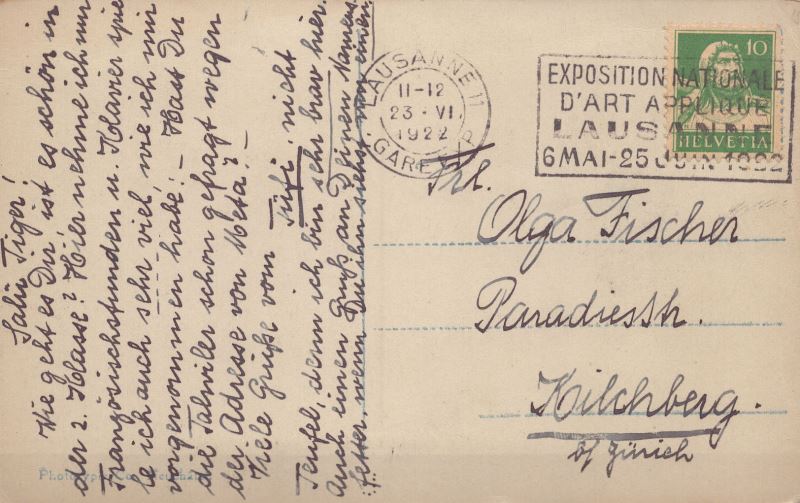 Salü Tiger!
Wie geht es Dir, ist es schön in
der 2. Klasse? Hier nehme ich nur
Französischstunden u. Klavier spie
le ich auch sehr viel, wie ich mir
vorgenommen habe! – Hast Du
die Talwiler schon gefragt wegen
der Adresse von Meta? –
Viele Grüße vom Fifi, nicht
Teufel, denn ich bin sehr brav hier.
Auch einen Gruß an Deinen Namens
fetter, wenn Du ihn siehst von einem
LAUSANNE 11
11-12
23·VI
1922
GARE EXP.
EXPOSITION NATIONALE
D'ART APPLIQUÉ
LAUSANNE
6 MAI-25 JUIN 1922
10
HELVETIA
Frl.
Olga Fischer
Paradiesstr.
Kilchberg.
b/ Zürich